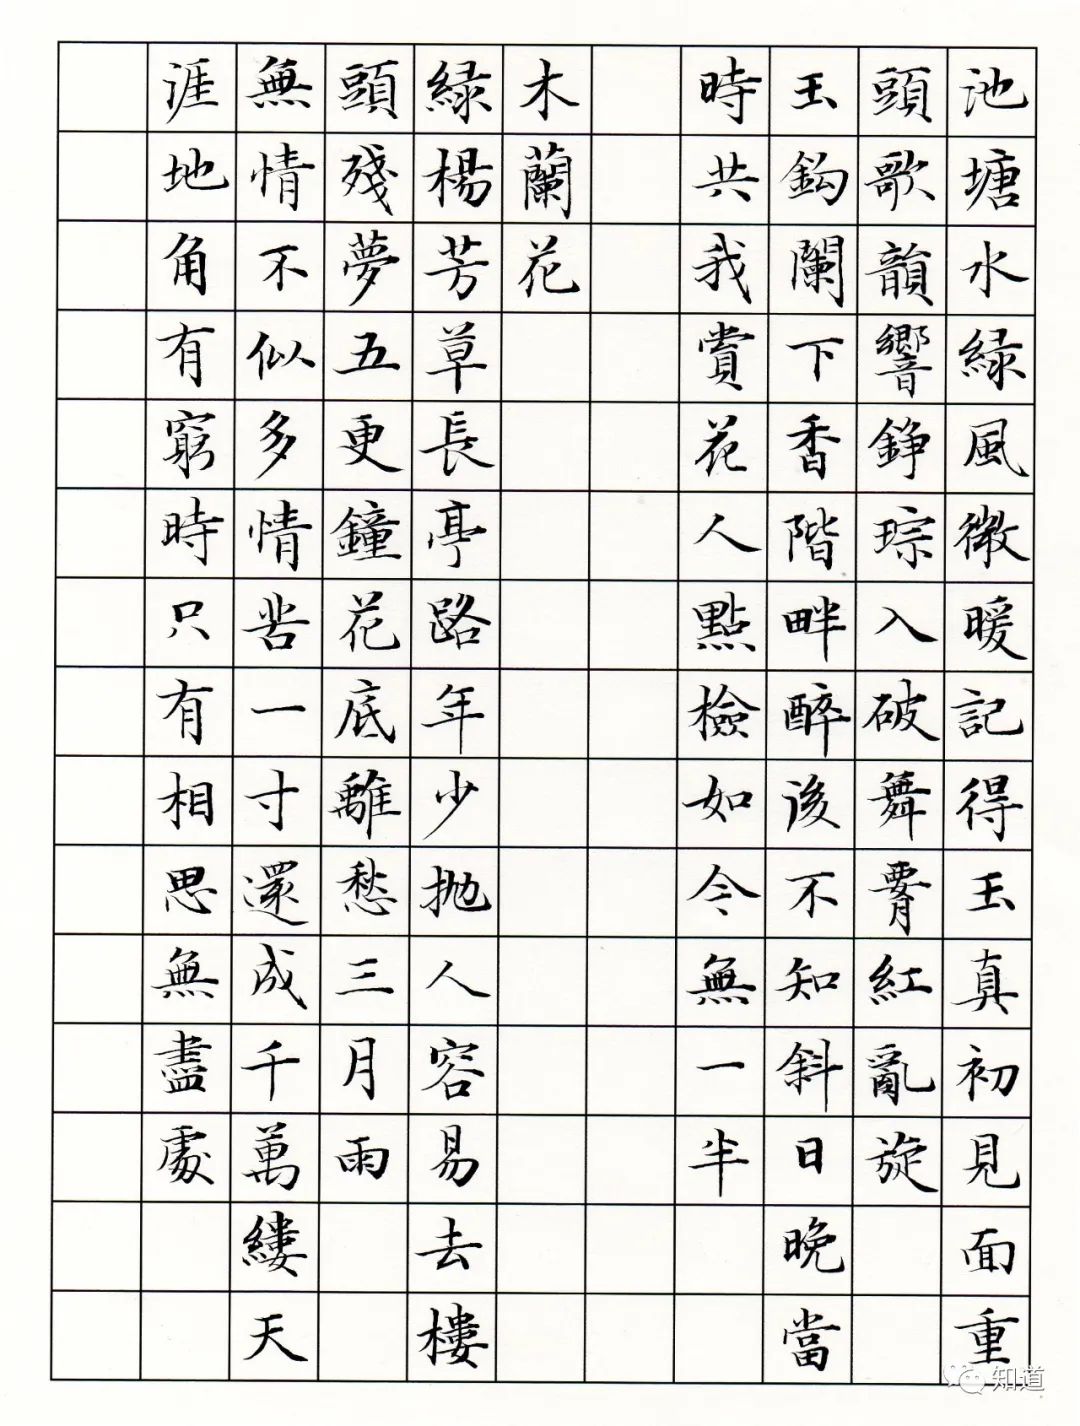 池塘水緑風微暖記得玉真初見面重
頭歌韻響錚琮入破舞腰紅亂旋
玉鈎闌下香階畔醉後不知斜日晚當
時共我賞花人點檢如今無一半
木蘭花
緑楊芳草長亭路年少抛人容易去樓
頭殘夢五更鐘花底離愁三月雨
無情不似多情苦一寸還成千萬縷天
涯地角有窮時只有相思無盡處
知道